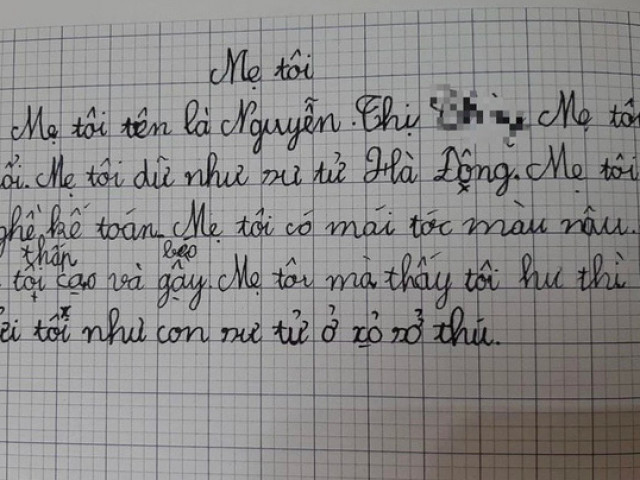 Mẹ tôi
Mẹ tôi tên là Nguyễn Thị Mẹ tôi
Mẹ tôi dữ như sư tử Hà Đông. Mẹ tôi
kế toán. Mẹ tôi có mái tóc màu nâu.
thấp béo
tôi cao và gầy. Mẹ tôi mà thấy tôi hư thì
tôi như con sư tử ở xỏ sở thú.